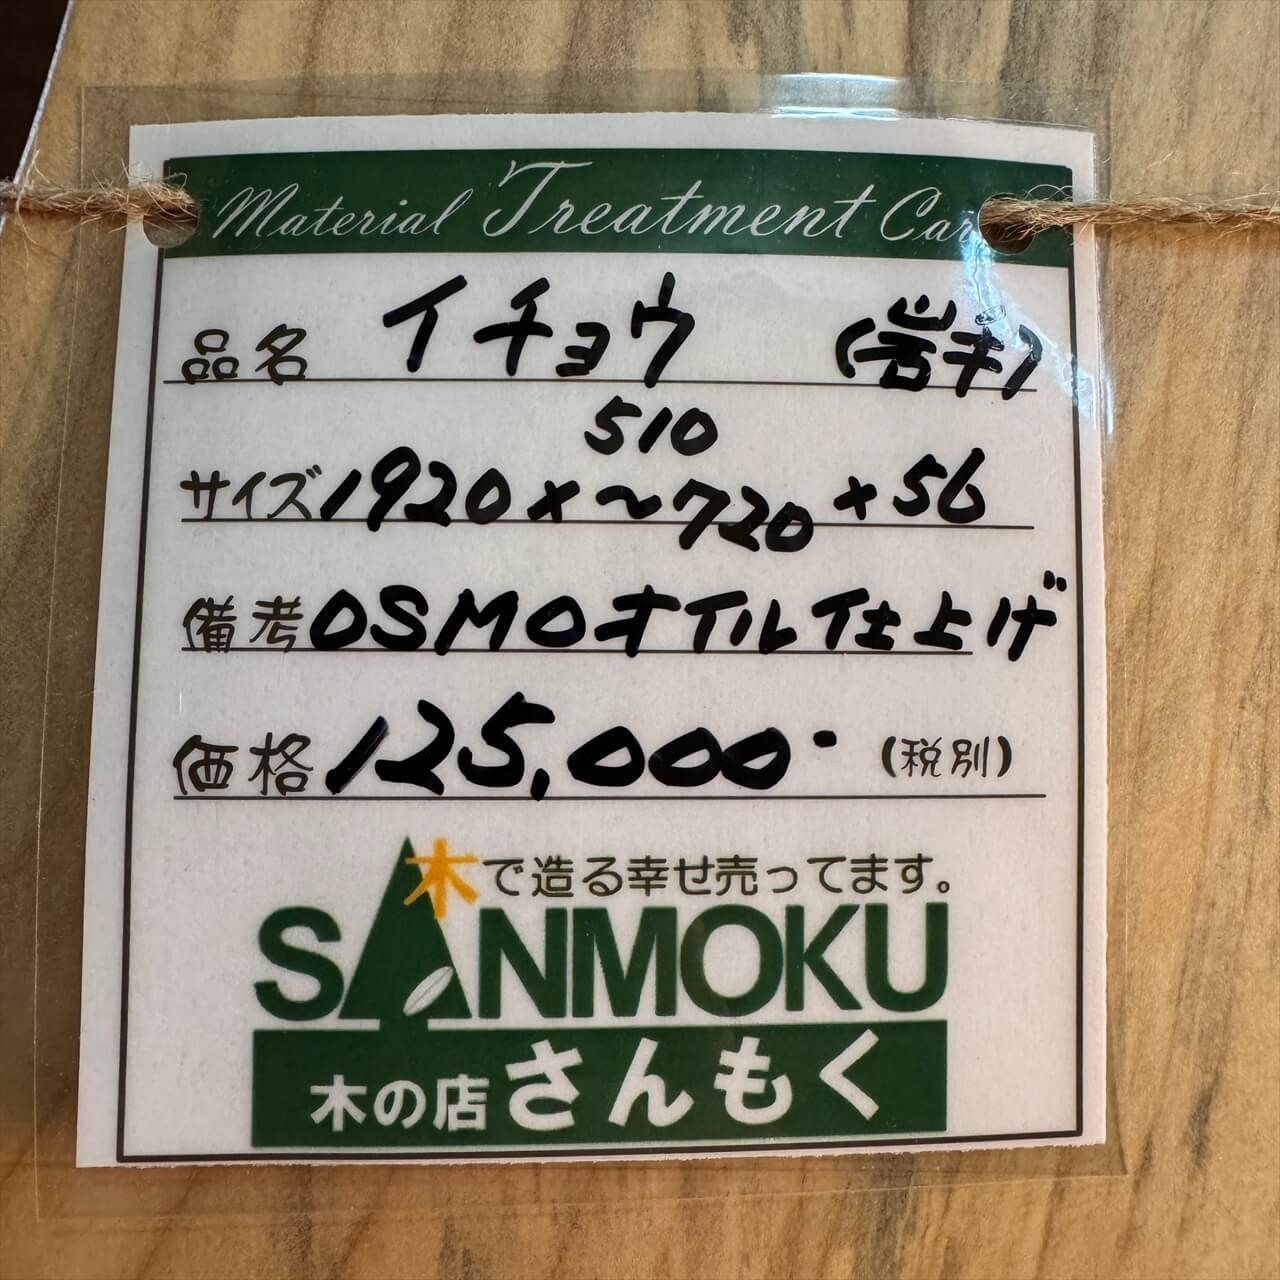 Material Treatment Car
品名 イチョウ (岩手)
サイズ 1920×510~720×56
備考 OSMOオイル仕上げ
価格 125,000- (税別)
木で造る幸せ売ってます。
SANMOKU
木の店 さんもく